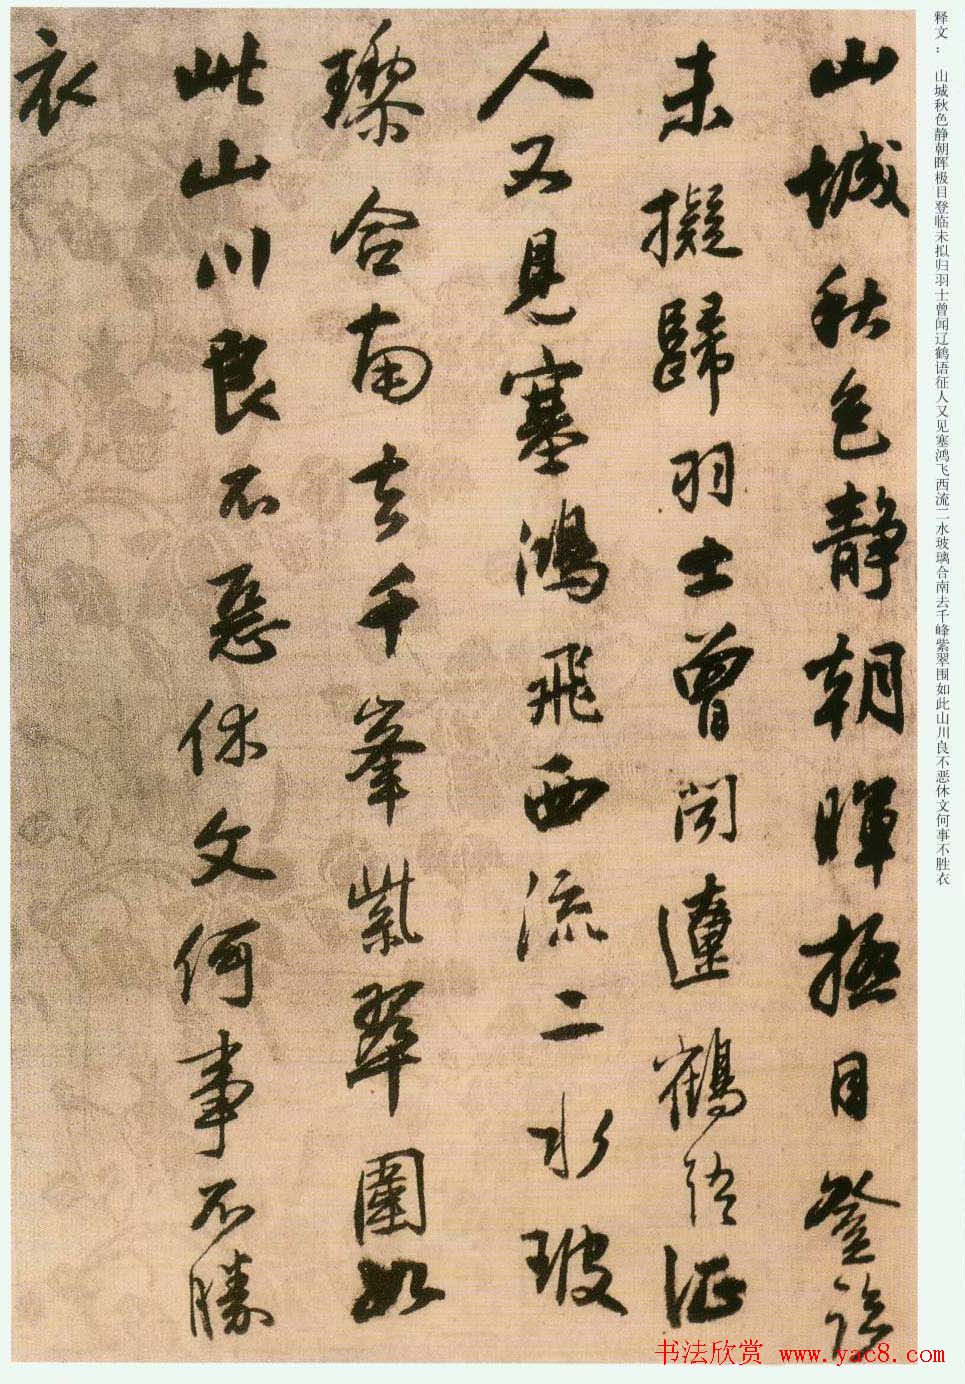 释文： 山城秋色静朝晖极目登临未拟归羽士曾闻辽鹤语征人又见塞鸿飞西流二水玻璃合南去千峰紫翠围如此山川良不恶休文何事不胜衣
山城秋色静朝暉極目登臨
未擬歸羽士曾闻遼鶴语征
人又見塞鴻飛西流二水玻
瓈合南去千峯紫翠圍如
此山川良不惡休文何事不勝
衣
书法欣赏 www.yac8.com